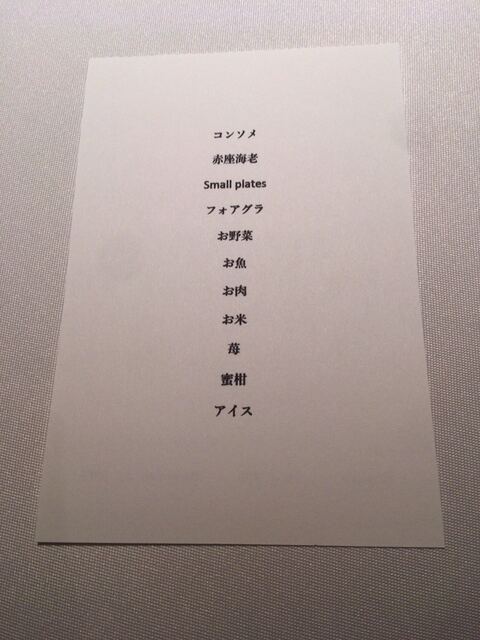 コンソメ
赤座海老
Small plates
フォアグラ
お野菜
お魚
お肉
お米
苺
蜜柑
アイス